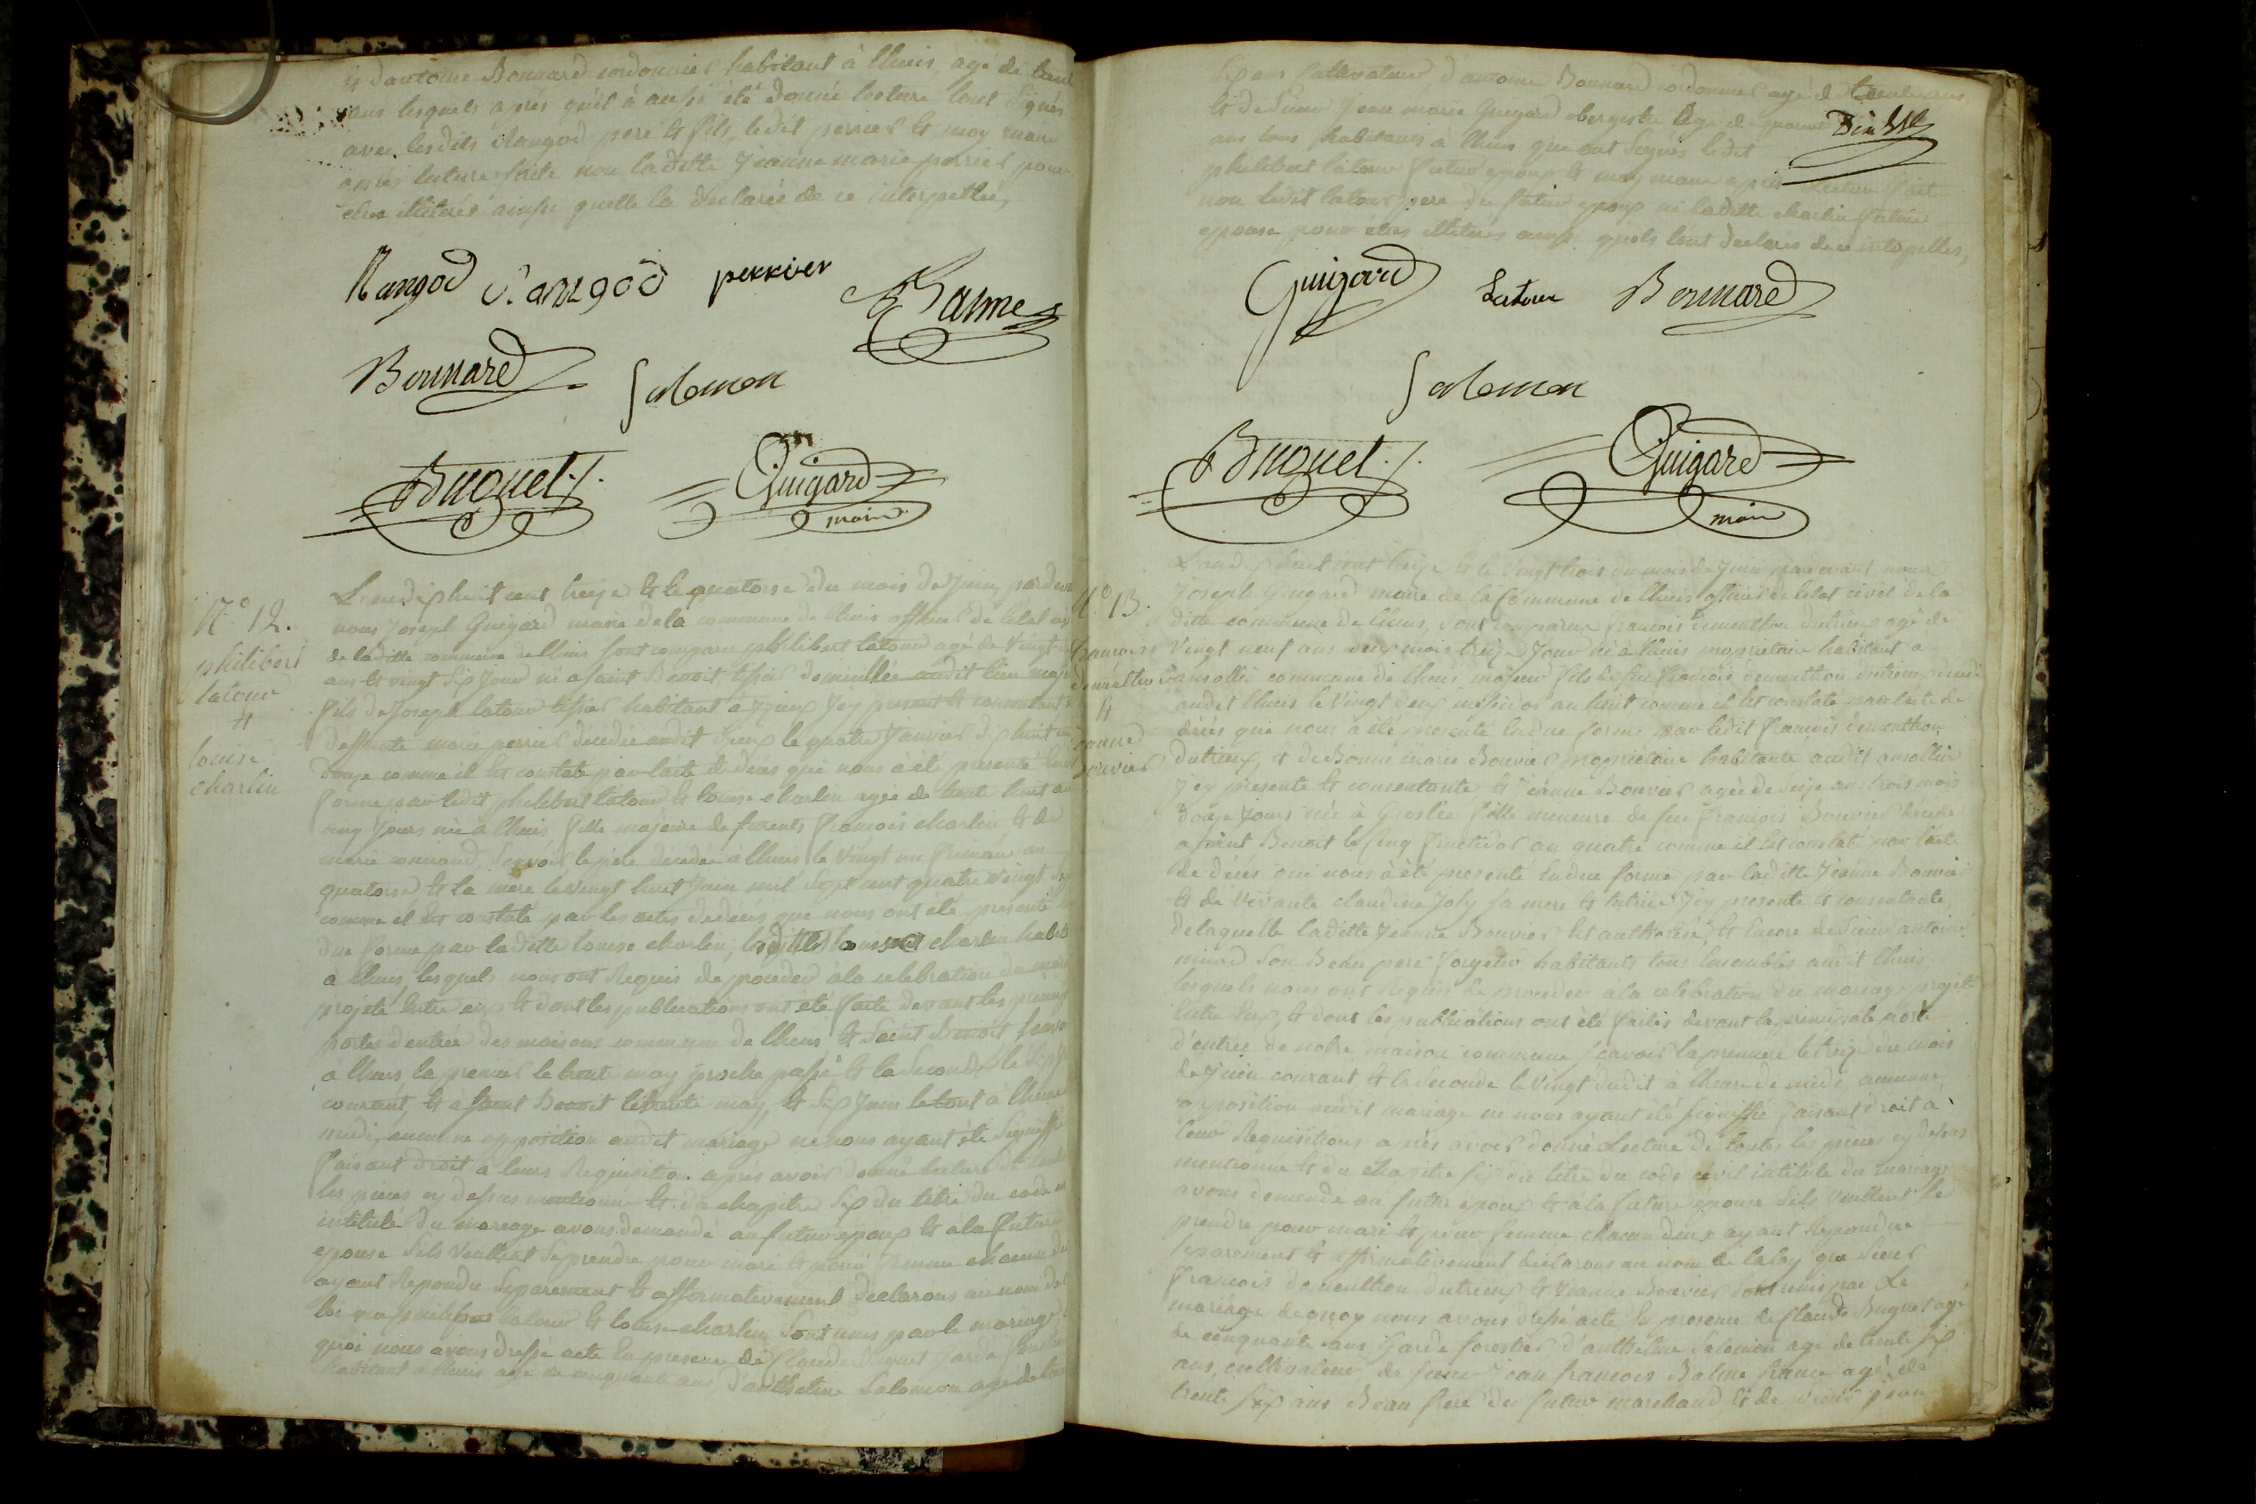 & d'antoine Bonnard cordonnier habitant à lhuis, agé de trente
ans lesquels après qu'il à aussi été donné lecture sont signés
avec lesdits Mangod pere & fils, ledit perrier & moy maire
après lecture faite non laditte Jeanne marie perrier pour
etre illiterée ainsi quelle la declarée de ce interpellée,
Mangod Mangod perrier
Balme
Bonnard Salomon
Buguet Guigard
maire
N.o 12.
philibert
latour
&
louise
charlin
L'an dix huit cent treize & le quatorze du mois de Juin, par devant
nous Joseph Guigard maire de la commune de lhuis officier de l'etat
de laditte commune de lhuis sont comparu philibert latour agé de vingt
ans & vingt six Jours né a saint Benoit tissier domicillié audit lieu majeur
fils de Joseph latour tissier habitant a yzieux Jcy present & consentant
deffunte marie perrier decedée audit yzieux le quatre Janvier dix huit cent
douze comme il est constaté par l'acte de décès qui nous a été presenté
forme par ledit philibert latour & louise charlin agée de trente huit ans
cinq Jours née a lhuis fille majeure de furents françois charlin & de
marie sçavoir le père décédé à lhuis le vingt un frimaire an
quatorze & la mere le vingt huit Juin mil sept cent quatre vingt
comme il est constaté par les actes de décès que nous ont été presenté
due forme par laditte louise charlin, charlin
a lhuis, lesquels nous ont Requis de proceder à la celebration du
projeté entre eux & dont les publications ont été faite devant les
portes d'entrée des maisons commune de lhuis & Saint Benoit
a lhuis, la premiere le trente may proche passé & la seconde le six
courant, & a Saint Benoit le trente may, & six Juin le tout à lheure
midi, aucune opposition audit mariage ne nous ayant été signiffié
faisant droit a leurs Requisition apres avoir donné lecture de
les pieces cy dessus mentionné & du chapitre six du titre du code
intitulé du mariage avons demandé au futur epoux & a la future
epouse sils veullent se prendre pour mari & pour femme chacun d'eux
ayant Repondu separement & affirmativement declarons au nom de la
loi que philibert latour & louise charlin sont unis par le mariage
quoi nous avons dressé acte en presence de Claude Buguet garde
habitant a lhuis agé de cinquante ans, d'anthelme Salomon agé de
six ans cultivateur d'antoine Bonnard cordonnier agé de trente ans
& de Sieur Jean marie Guigard obergiste agé de
ans tous habitants à lhuis que ont signés ledit
philibert latour futur epoux & moy maire après lecture fait
non ledit latour pere du futur epoux ni laditte charlin future
epouse pour etres illiterés ainsi quils lont declarés de ce interpellés,
Guigard Latour Bonnard
Salomon
Buguet Guigard
maire
N.o 13.
françois
demeuthon
&
Jeanne
Bouvier
L'an dix huit cent treize & le vingt trois du mois de Juin par devant nous
Joseph Guigard maire de la Commune de lhuis officier de l'etat civil de la
ditte commune de lhuis, sont comparu françois demeuthon dutrieux agé de
vingt neuf ans deux mois treize Jours né a lhuis proprietaire habitant a
ansolin commune de lhuis majeur fils de feu françois demeuthon dutrieux
audit lhuis le vingt deux messidor an huit comme il est constaté par l'acte de
décès qui nous a été presenté en due forme par ledit françois demeuthon
dutrieux, & de Bonne marie Bouvier proprietaire habitante audit ansolin
Jcy presente & consentante & Jeanne Bouvier agée de seize ans trois mois
douze Jours née à Groslée fille mineure de feu françois Bouvier decedé
a saint Benoit le cinq fructidor an quatre comme il est constaté par l'acte
de décès qui nous à été presenté en due forme par laditte Jeanne Bouvier
& de vivante claudine Joly sa mere & tutrice Jcy presente & consentante,
de laquelle laditte Jeanne Bouvier est authorisée, & encore de Sieur antoine
son Beau pere habitants tous ensembles audit lhuis
lesquels nous ont Requis de proceder a la celebration du mariage projeté
entre eux, & dont les publications ont été faites devant la principale porte
d'entrée de notre maison commune scavoir la premiere le treize du mois
de Juin courant & la seconde le vingt dudit à lheure de midi, aucune
opposition audit mariage ne nous ayant été signiffié faisant droit a
leur Requisitions après avoir donné Lecture de toutes les pieces cy dessus
mentionné & du chapitre six du titre du code civil intitulé du mariage
avons demandé au futur epoux & à la future epouse sils veullent se
prendre pour mari & pour femme chacun deux ayant Repondu
separement & affirmativement declarons au nom de la loy que Sieur
françois demeuthon dutrieux & Jeanne Bouvier sont unis par Le
mariage de quoy nous avons dressé acte en presence de Claude Buguet agé
de cinquante ans Garde forestier d'anthelme Salomon agé de trente six
ans, cultivateur, de sieur Jean françois Balme agé de
trente six ans Beau frere du futur marchand & de sieur Jean